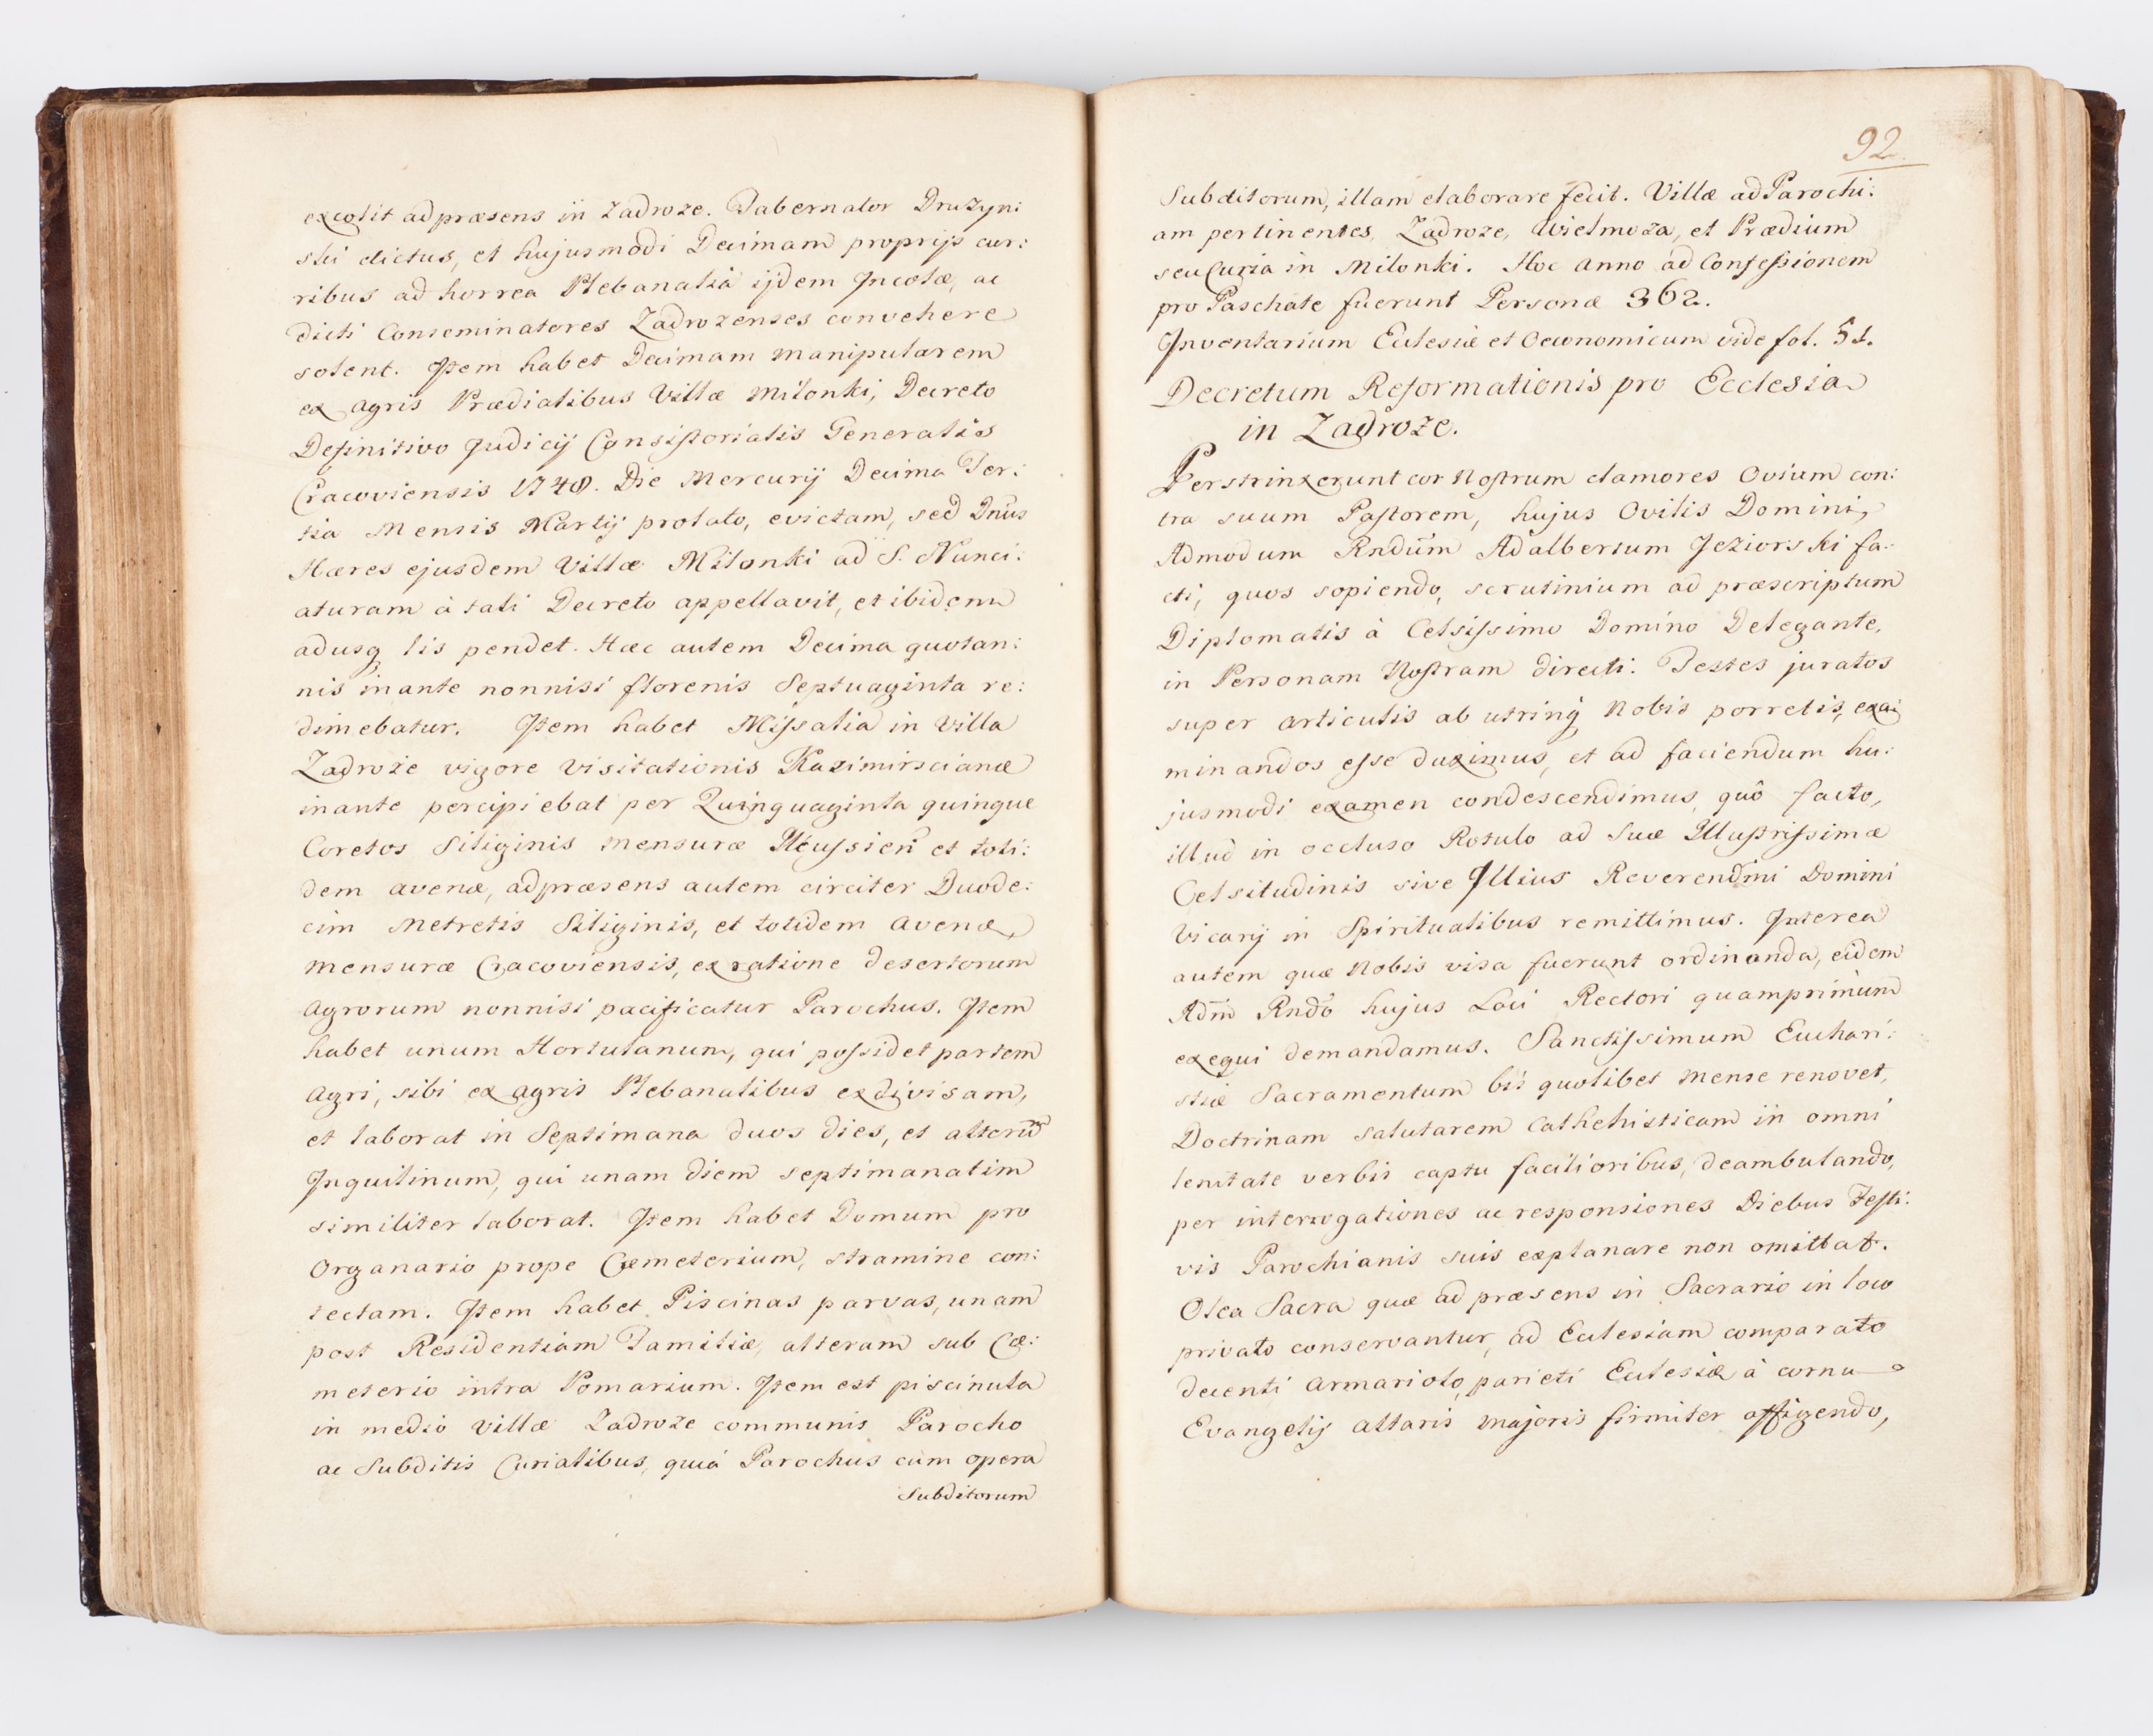 excolit ad præsens in Zadroze. Tabernator Druzyn:
ski dictus, et hujusmodi Decimam proprijs cur:
ribus ad horrea Plebanalia ijdem Incolæ, ac
dicti Conseminatores Zadrozenses convehere
solent. Item habet Decimam manipularem
ex agris Prædialibus Villæ Milonki, Decreto
Definitivo Judicij Consistorialis Generalis
Cracoviensis 1748. Die Mercurij Decima Ter:
tia Mensis Martij prolato, evictam, sed Dnus
Hæres ejusdem Villæ Milonki ad S. Nunci:
aturam à tali Decreto appellavit, et ibidem
adusq lis pendet. Hæc autem Decima quotan:
nis in ante nonnisi florenis Septuaginta re:
dimebatur. Item habet Missalia in Villa
Zadroże vigore visitationis Kazimirscianæ
inante percipiebat per Quinquaginta quinque
Coretos Siliginis mensuræ et toti:
dem avenæ, ad præsens autem circiter Duode:
cim Metretis Siliginis, et totidem avenæ,
mensuræ Cracoviensis, ex ratione desertorum
agrorum nonnisi pacificatur Parochus. Item
habet unum Hortulanum, qui possidet partem
agri, sibi ex agris Plebanalibus exdivisam,
et laborat in Septimana duos dies, et alterũ
Inquilinum, qui unam diem septimanatim
similiter laborat. Item habet Domum pro
Organario prope Cæmeterium, stramine con:
tectam. Item habet Piscinas parvas, unam
post Residentiam Familiæ, alteram sub Cæ:
meterio intra Pomarium. Item est piscinula
in medio Villæ Zadroze communis Parocho
ac Subditis Curialibus, quià Parochus cum opera
Subditorum
92.
Subditorum, illam elaborare fecit. Villæ ad Parochi:
am pertinentes, Zadroze, Wielmoza, et Prædium
seu Curia in Milonki. Hoc anno ad Confessionem
pro Paschate fuerunt Personæ 362.
Inventarium Ecclesiæ et Oeconomicum vide fol. 51.
Decretum Reformationis pro Ecclesia
in Zadroże.
Perstrinxerunt cor Nostrum clamores Ovium con:
tra suum Pastorem, hujus Ovilis Domini,
Admodum Rndum Adalbertum Jeziorski fa:
cti, quos sopiendo, scrutinium ad præscriptum
Diplomatis à Celsissimo Domino Delegante,
in Personam Nostram directi. Testes juratos
super articulis ab utrinq Nobis porrectis, exa:
minandos esse duximus, et ad faciendum hu:
jusmodi examen condescendimus, quô facto,
illud in occluso Rotulo ad Suæ Illustrissimæ
Celsitudinis sive Illius Reverendmi Domini
Vicarij in Spiritualibus remittimus. Interea
autem quæ Nobis visa fuerunt ordinanda, eidem
Adm Rndo hujus Loci Rectori quamprimum
exequi demandamus. Sanctissimum Euchari:
stiæ Sacramentum bis quolibet mense renovet,
Doctrinam salutarem Cathehisticam in omni
lenitate verbis captu facilioribus, deambulando,
per interrogationes ac responsiones Diebus Festi:
vis Parochianis suis explanare non omittat.
Olea Sacra quæ ad præsens in Sacrario in loco
privato conservantur, ad Ecclesiam comparato
decenti armariolo, parieti Ecclesiæ à cornu
Evangelij altaris majoris firmiter affigendo,